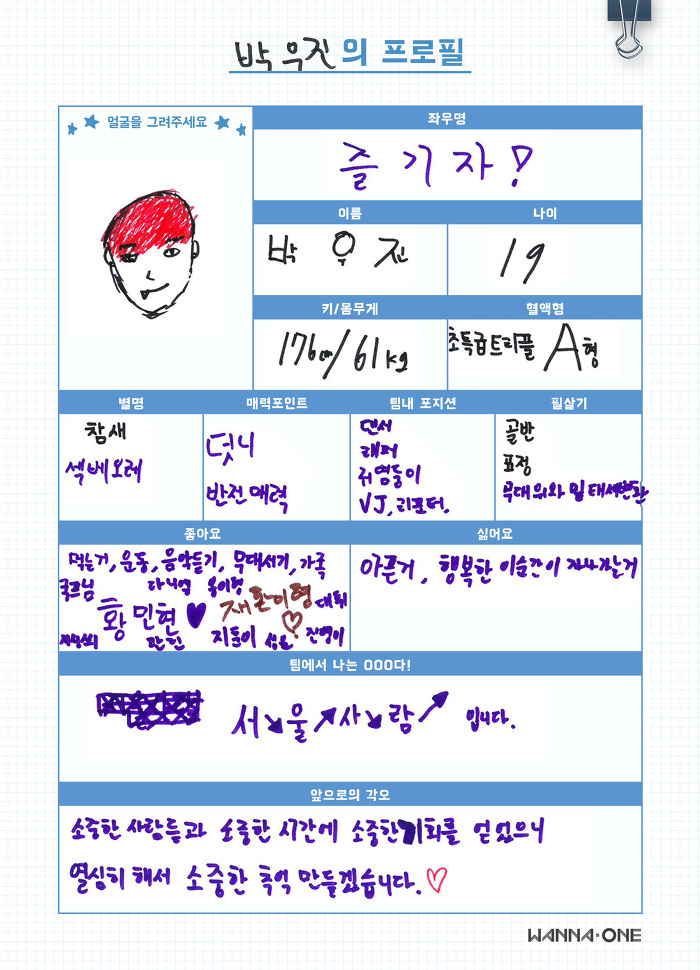 박우진의 프로필
얼굴을 그려주세요
좌우명
즐기자!
이름
나이
박우진
19
키/몸무게
혈액형
176cm/61kg
초특급트리플 A형
별명
매력포인트
팀내 포지션
필살기
참새
섹베오레
덧니
반전매력
댄서
래퍼
귀염둥이
VJ, 리포터.
골반
표정
무대 위와 밑 태세변환
좋아요
싫어요
먹는거, 운동, 음악듣기, 무대서기, 가족
국프님 다니엘 옹이형
황민현 재환이형 대휘
지훈이 성운 진영이
아픈거, 행복한 이순간이 지나가는거
팀에서 나는 OOO다!
서↘울↗사↘람↗ 입니다.
앞으로의 각오
소중한 사람들과 소중한 시간에 소중한 기회를 얻었으니
열심히 해서 소중한 추억 만들겠습니다.♡
WANNA·ONE